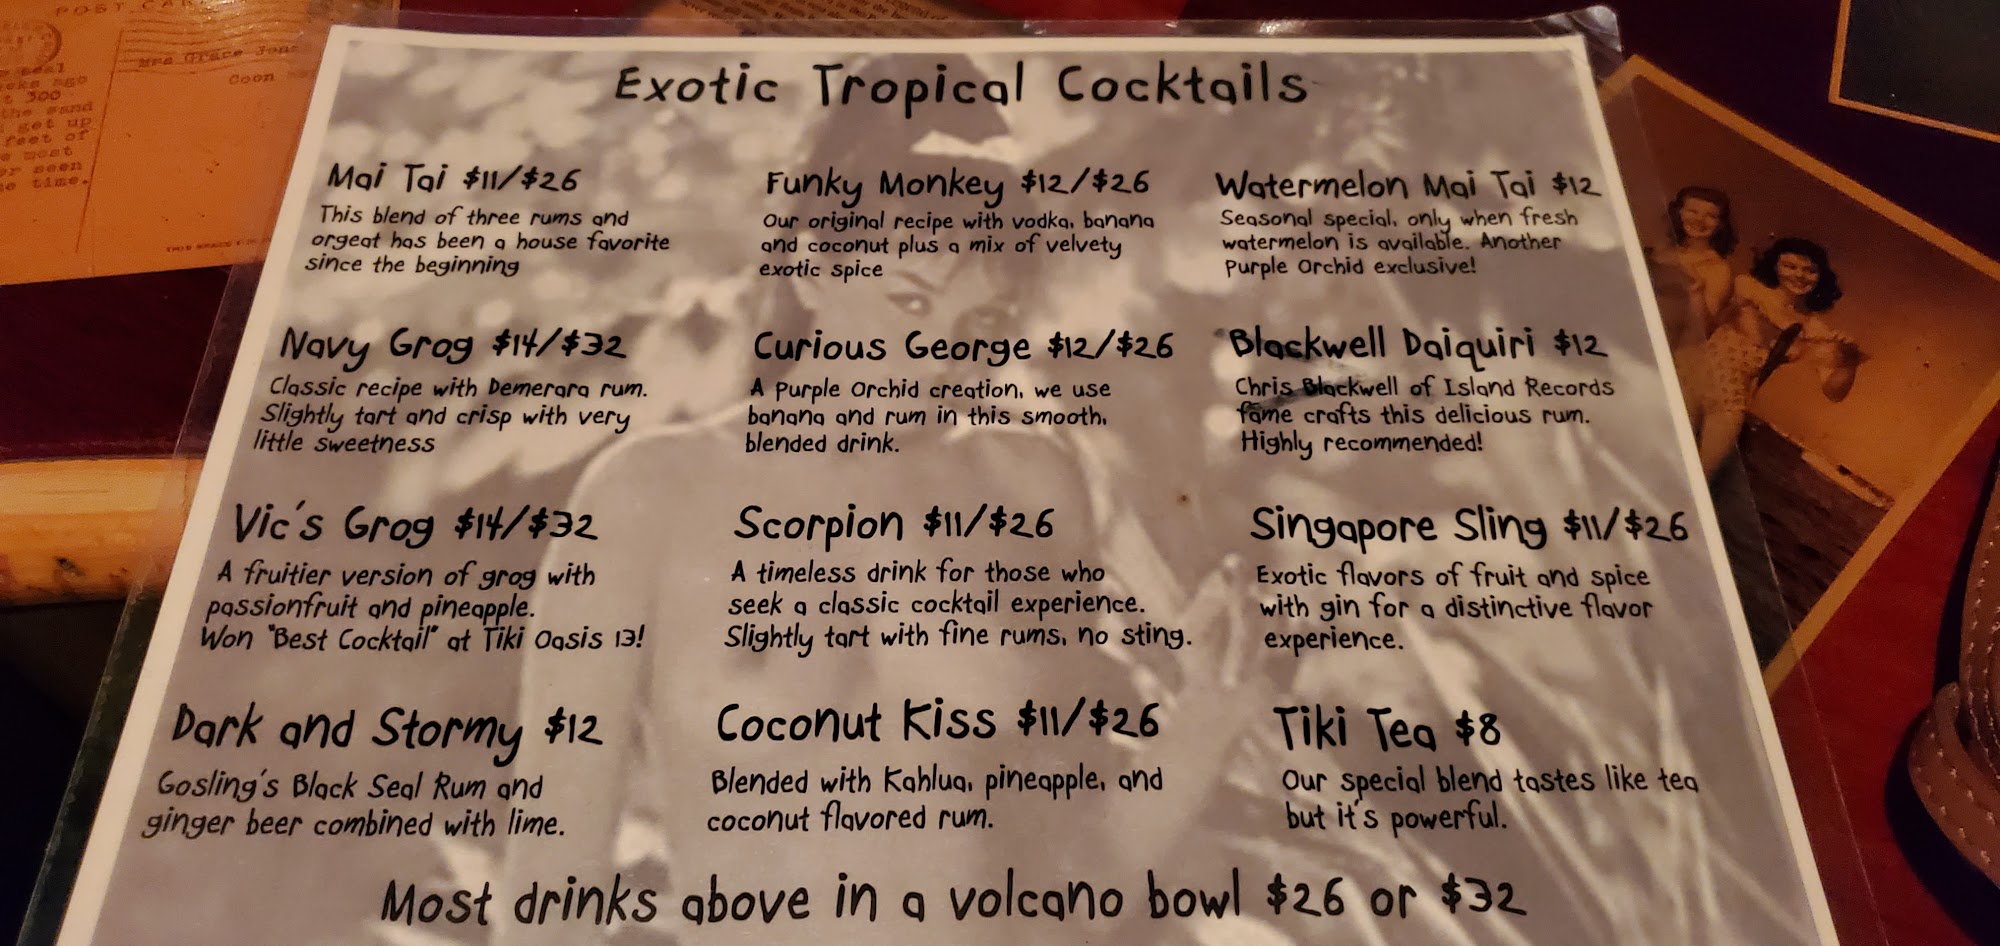 POST CA
Mrs Grace Jon
Coon
seal
ago
300
the sand
get up
feet of
most
seen
time.
Exotic Tropical Cocktails
Mai Tai $11/$26
This blend of three rums and
orgeat has been a house favorite
since the beginning
Funky Monkey $12/$26
Our original recipe with vodka, banana
and coconut plus a mix of velvety
exotic spice
Watermelon Mai Tai $12
Seasonal special, only when fresh
watermelon is available. Another
Purple Orchid exclusive!
Navy Grog $14/$32
Classic recipe with Demerara rum.
Slightly tart and crisp with very
little sweetness
Curious George $12/$26
A Purple Orchid creation, we use
banana and rum in this smooth,
blended drink.
Blackwell Daiquiri $12
Chris Blackwell of Island Records
fame crafts this delicious rum.
Highly recommended!
Vic's Grog $14/$32
A fruitier version of grog with
passionfruit and pineapple.
Won "Best Cocktail" at Tiki Oasis 13!
Scorpion $11/$26
A timeless drink for those who
seek a classic cocktail experience.
Slightly tart with fine rums, no sting.
Singapore Sling $11/$26
Exotic flavors of fruit and spice
with gin for a distinctive flavor
experience.
Dark and Stormy $12
Gosling's Black Seal Rum and
ginger beer combined with lime.
Coconut Kiss $11/$26
Blended with Kahlua, pineapple, and
coconut flavored rum.
Tiki Tea $8
Our special blend tastes like tea
but it's powerful.
Most drinks above in a volcano bowl $26 or $32